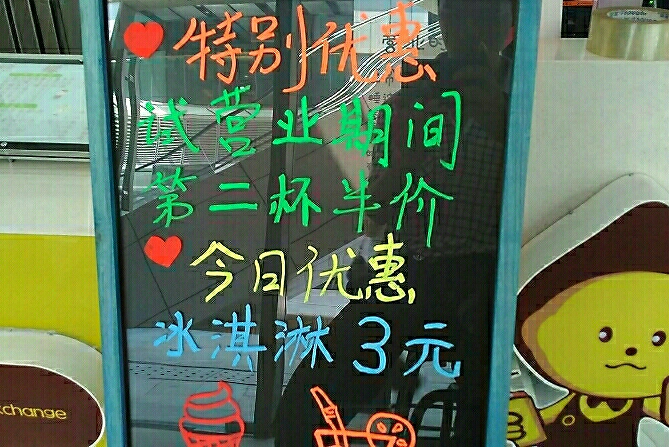 特别优惠
试营业期间
第二杯半价
今日优惠
冰淇淋3元
change